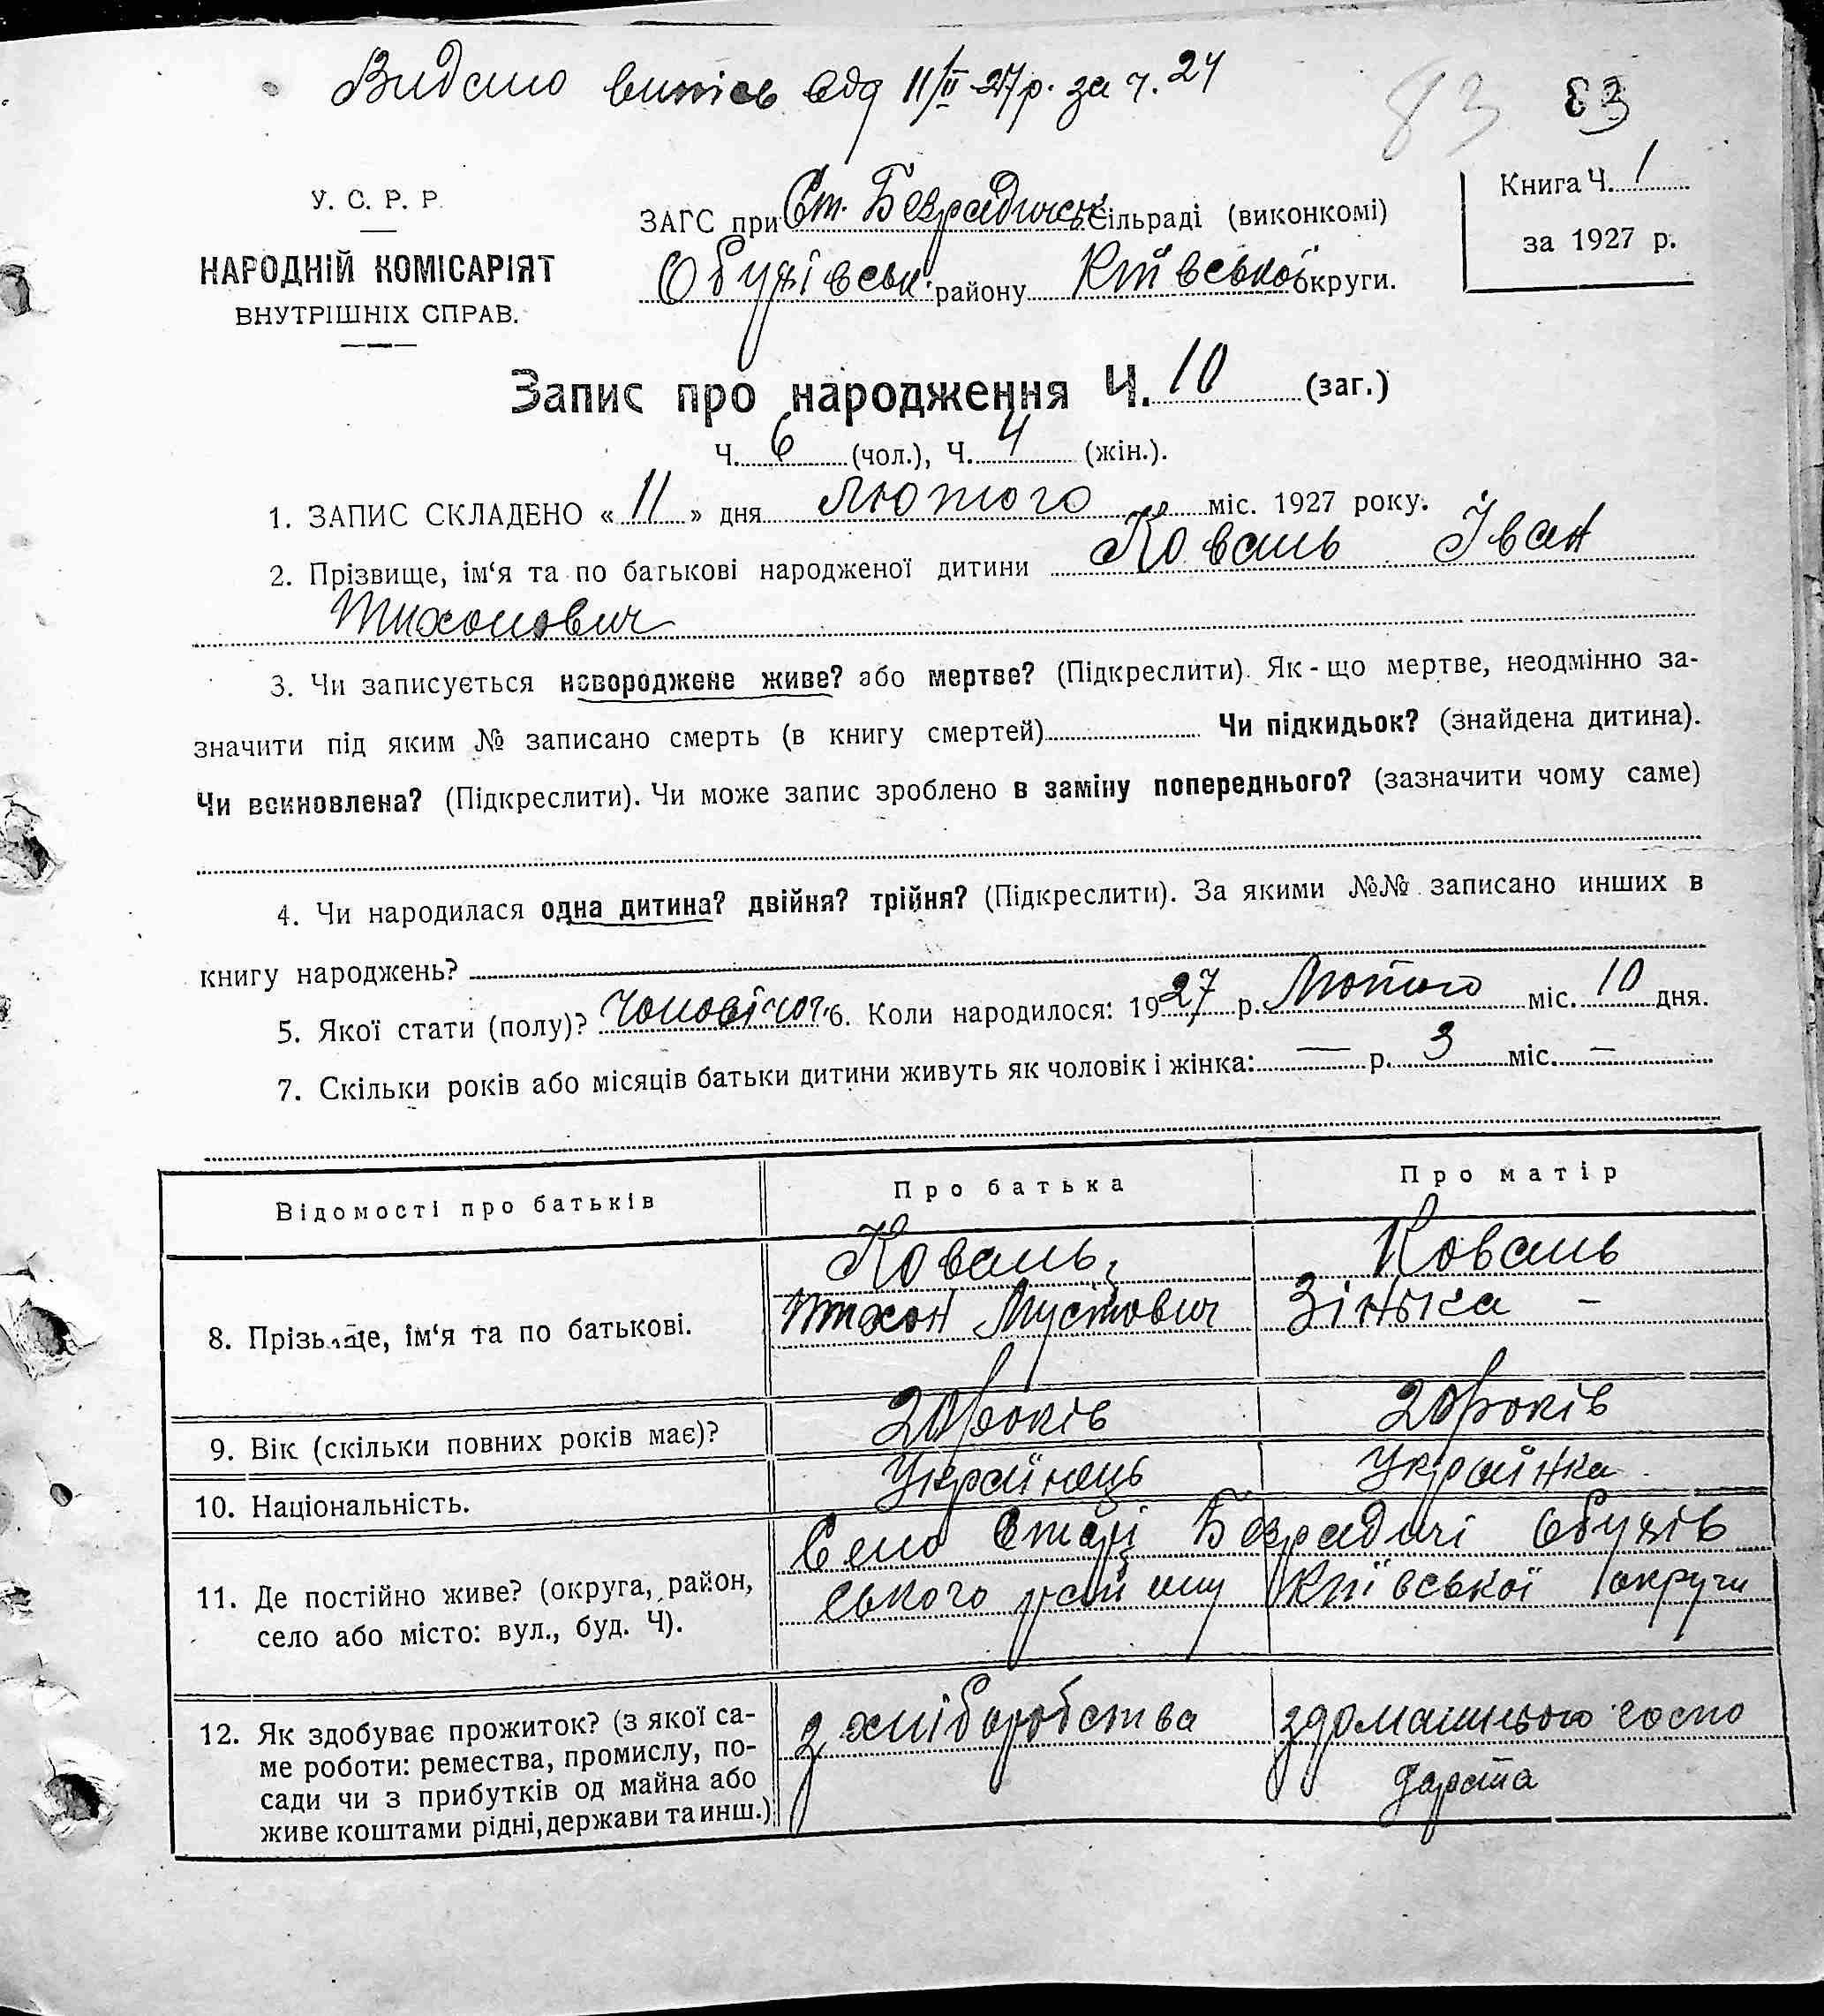 Видано випісь од 11/II-27р. за ч. 24
83 83
У. С. Р. Р.
НАРОДНІЙ КОМІСАРІЯТ
ВНУТРІШНІХ СПРАВ.
ЗАГС при Ст. Безрадичськ Сільраді (виконкомі)
Обухівськ. району Київської округи.
Книга Ч. 1
за 1927 р.
Запис про народження Ч. 10 (заг.)
Ч. 6 (чол.), Ч. 4 (жін.).
1. ЗАПИС СКЛАДЕНО « 11 » дня Лютого міс. 1927 року.
2. Прізвище, ім‘я та по батькові народженої дитини Коваль Іван
Тихонович
3. Чи записується новороджене живе? або мертве? (Підкреслити). Як-що мертве, неодмінно за-
значити під яким № записано смерть (в книгу смертей) Чи підкидьок? (знайдена дитина).
Чи всиновлена? (Підкреслити). Чи може запис зроблено в заміну попереднього? (зазначити чому саме)
4. Чи народилася одна дитина? двійня? трійня? (Підкреслити). За якими №№ записано инших в
книгу народжень?
5. Якої стати (полу)? 6. Коли народилося: 1927 р. Лютого міс. 10 дня.
7. Скільки років або місяців батьки дитини живуть як чоловік і жінка: — р. 3 міс. —
Відомості про батьків Про батька Про матір
8. Прізвище, ім‘я та по батькові.
Коваль Коваль
Тихон Зінька –
9. Вік (скільки повних років має)? 20 років 20 років
10. Національність. Українець Українка
11. Де постійно живе? (округа, район,
село або місто: вул., буд. Ч).
Село Старі Безрадичі Обухів
ського району Київської округи
12. Як здобуває прожиток? (з якої са-
ме роботи: ремества, промислу, по-
сади чи з прибутків од майна або
живе коштами рідні, держави та инш.)
з хліборобства з домашнього госпо
дарства